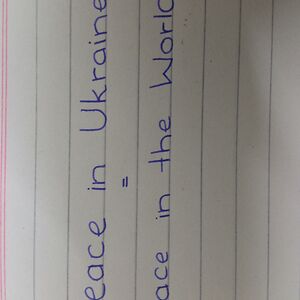 eace in Ukraine
=
ace in the World